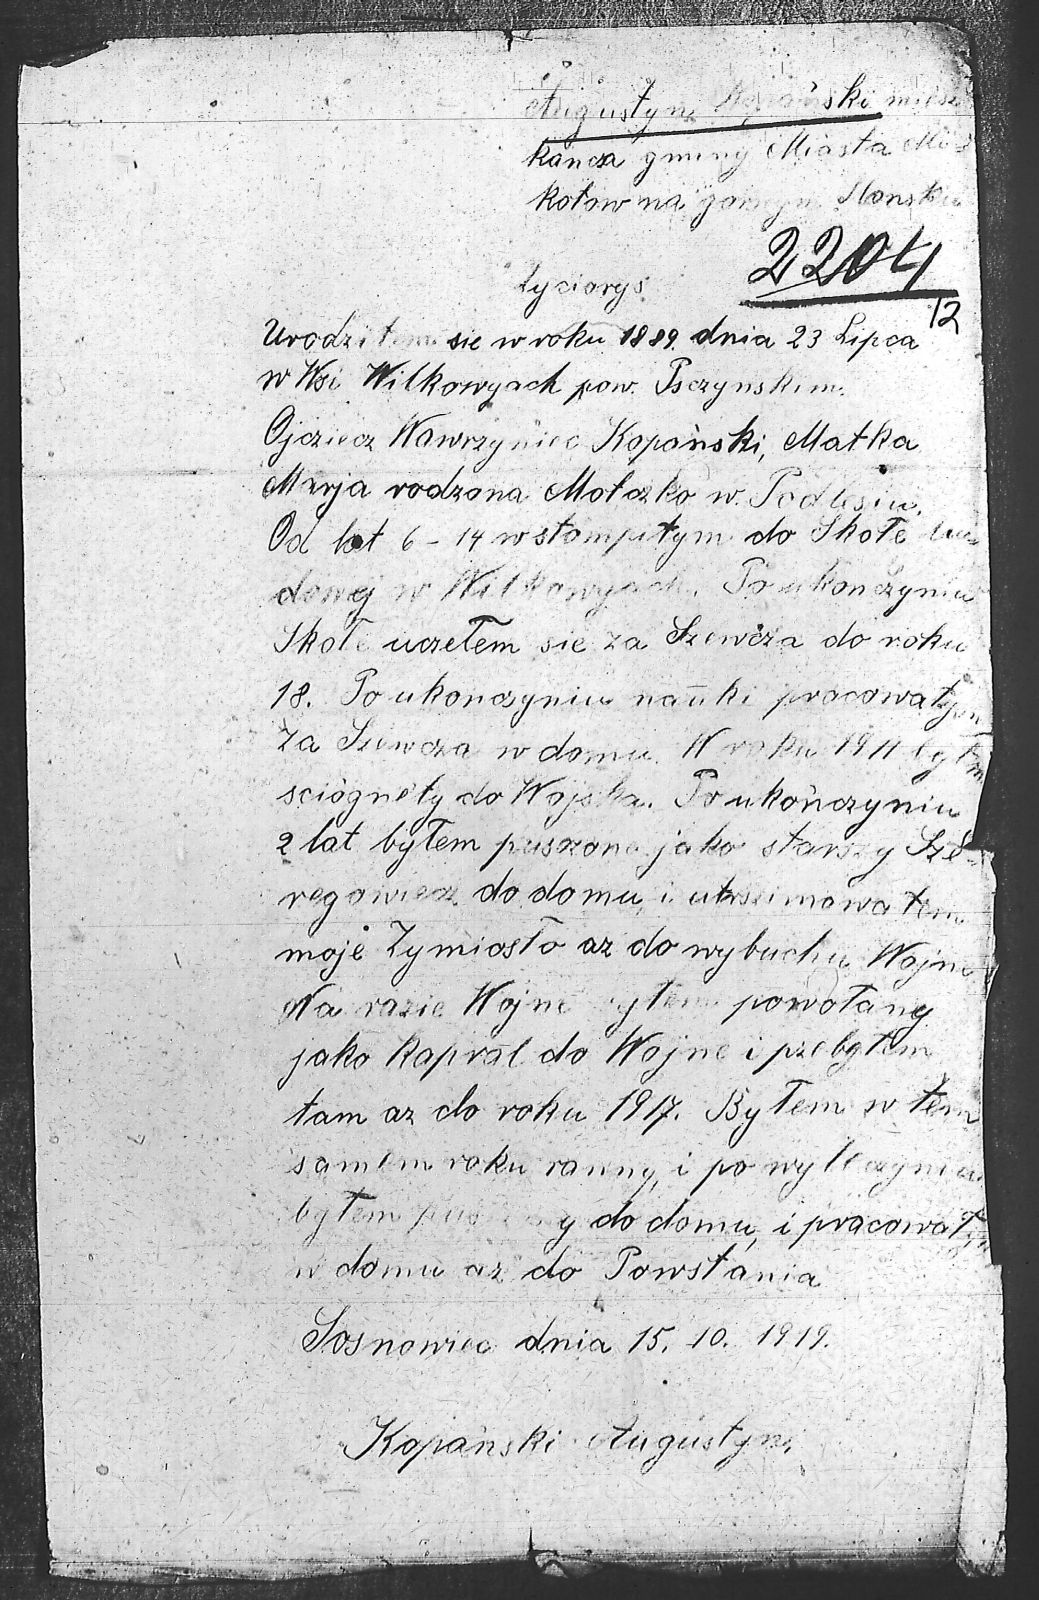 Augustyn Kopański miesz
kancza gminy Miasta Mi-
kołow na Slonsku
2204
12
Zyciorys
Urodziłem sie w roku 1889. dnia 23 Lipca
w Wsi Wilkowyach pow. Psczynskim.
Ojcziecz Wawrzyniec Kopański, Matka
Maryja rodzona Motazko w. Podlesiu.
Od lat 6 - 14 wstompiłym do Skołe lu-
dowej w Wilkowyach. Po ukonczyniu
Skołe uczełem sie za Szewcza do roku
18. Po ukonczyniu nauki pracowałym
za Szewcza w domu. W roku 1911 byłem
sciògnéty do Wojska. Po ukończyniu
2 lat byłem puszcone jako starszy Sze-
regowiecz do domu, i utrzimowałem
moje Zymiosło az do wybuchu Wojne
Na razie Wojne byłem powołany
jako Kaprал do Wojne i przebyłem
tam az do roku 1917. Byłem w tem
samem roku ranny, i po wyleczyniu
byłem do domu, i pracowałym
w domu az do Powstania
Sosnowiec dnia 15. 10. 1919.
Kopański Augustyn.